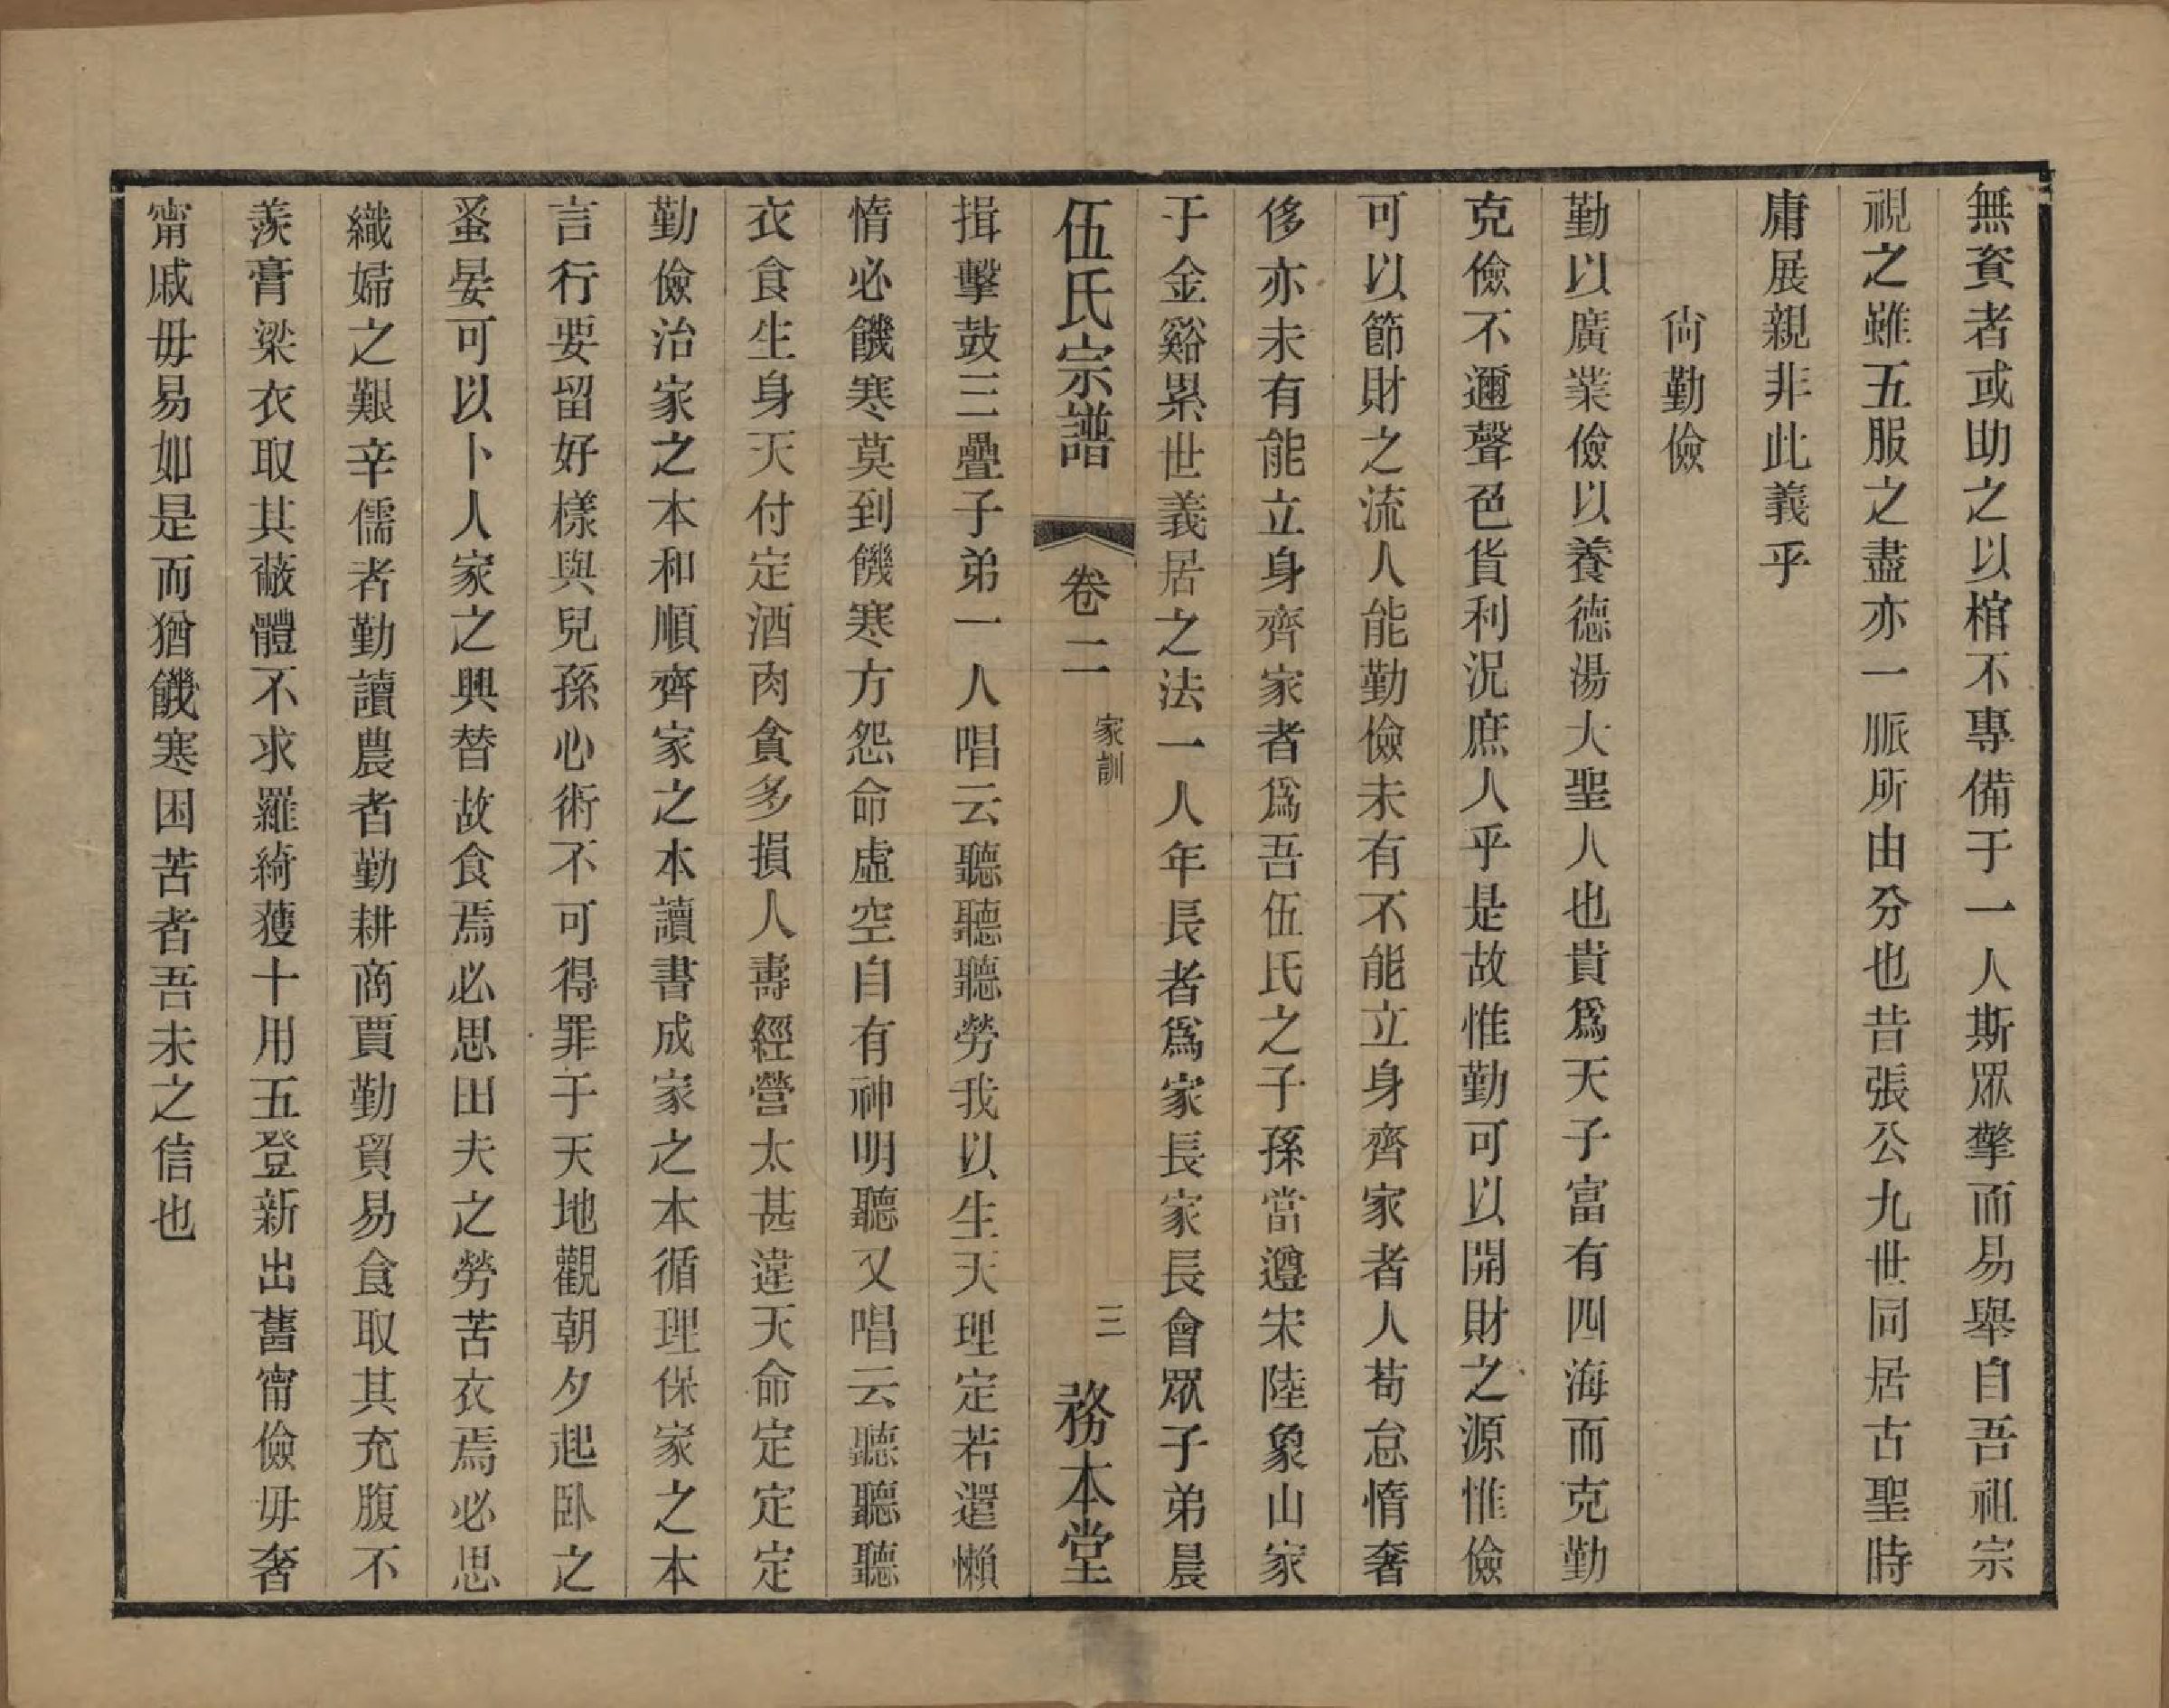 無資者或助之以棺不專備于一人斯眾擎而易舉自吾祖宗
視之雖五服之盡亦一脈所由分也昔張公九世同居古聖時
庸展親非此義乎
尙勤儉
勤以廣業儉以養德湯大聖人也貴爲天子富有四海而克勤
克儉不邇聲色貨利況庶人乎是故惟勤可以開財之源惟儉
可以節財之流人能勤儉未有不能立身齊家者人苟怠惰奢
侈亦未有能立身齊家者爲吾伍氏之子孫當遵宋陸象山家
于金谿累世義居之法一人年長者爲家長家長會眾子弟晨
伍氏宗譜
卷二
家訓
三
務本堂
揖擊鼓三疊子弟一人唱云聽聽聽勞我以生天理定若還懶
惰必饑寒莫到饑寒方怨命虛空自有神明聽又唱云聽聽聽
衣食生身天付定酒肉貪多損人壽經營太甚違天命定定定
勤儉治家之本和順齊家之本讀書成家之本循理保家之本
言行要留好樣與兒孫心術不可得罪于天地觀朝夕起臥之
蚤晏可以卜人家之興替故食焉必思田夫之勞苦衣焉必思
織婦之艱辛儒者勤讀農者勤耕商賈勤貿易食取其充腹不
羨膏粱衣取其蔽體不求羅綺獲十用五登新出舊甯儉毋奢
甯戚毋易如是而猶饑寒困苦者吾未之信也